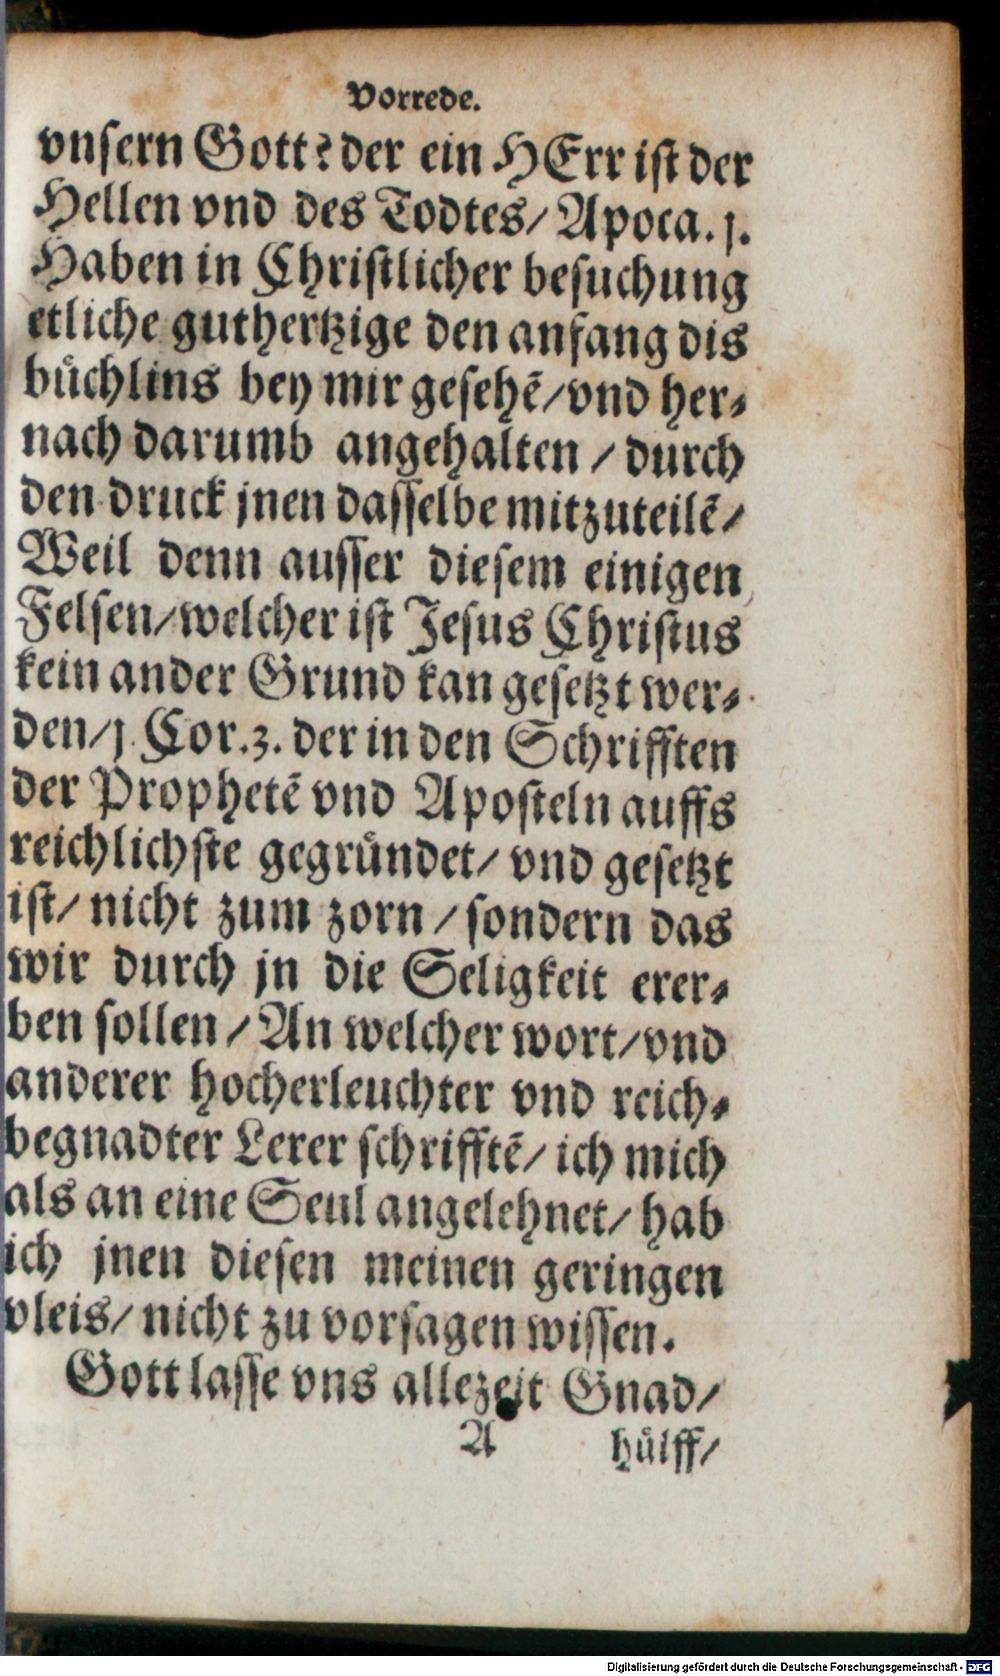 Vorrede.
vnsern Gott? der ein HErr ist der
Hellen vnd des Todtes/ Apoca. j.
Haben in Christlicher besuchung
etliche guthertzige den anfang dis
buͤchlins bey mir gesehẽ/vnd her⸗
nach darumb angehalten / durch
den druck jnen dasselbe mitzuteilẽ/
Weil denn ausser diesem einigen
Felsen/welcher ist Jesus Christus
kein ander Grund kan gesetzt wer⸗
den/j Cor.3. der in den Schrifften
der Prophetẽ vnd Aposteln auffs
reichlichste gegruͤndet/ vnd gesetzt
ist/ nicht zum zorn / sondern das
wir durch jn die Seligkeit erer⸗
ben sollen / An welcher wort/vnd
anderer hocherleuchter vnd reich⸗
begnadter Lerer schrifftẽ/ ich mich
als an eine Seul angelehnet/ hab
ich jnen diesen meinen geringen
vleis/ nicht zu vorsagen wissen.
Gott lasse vns allezeit Gnad/
A huͤlff/
Digitalisierung gefördert durch die Deutsche Forschungsgemeinschaft - DFG